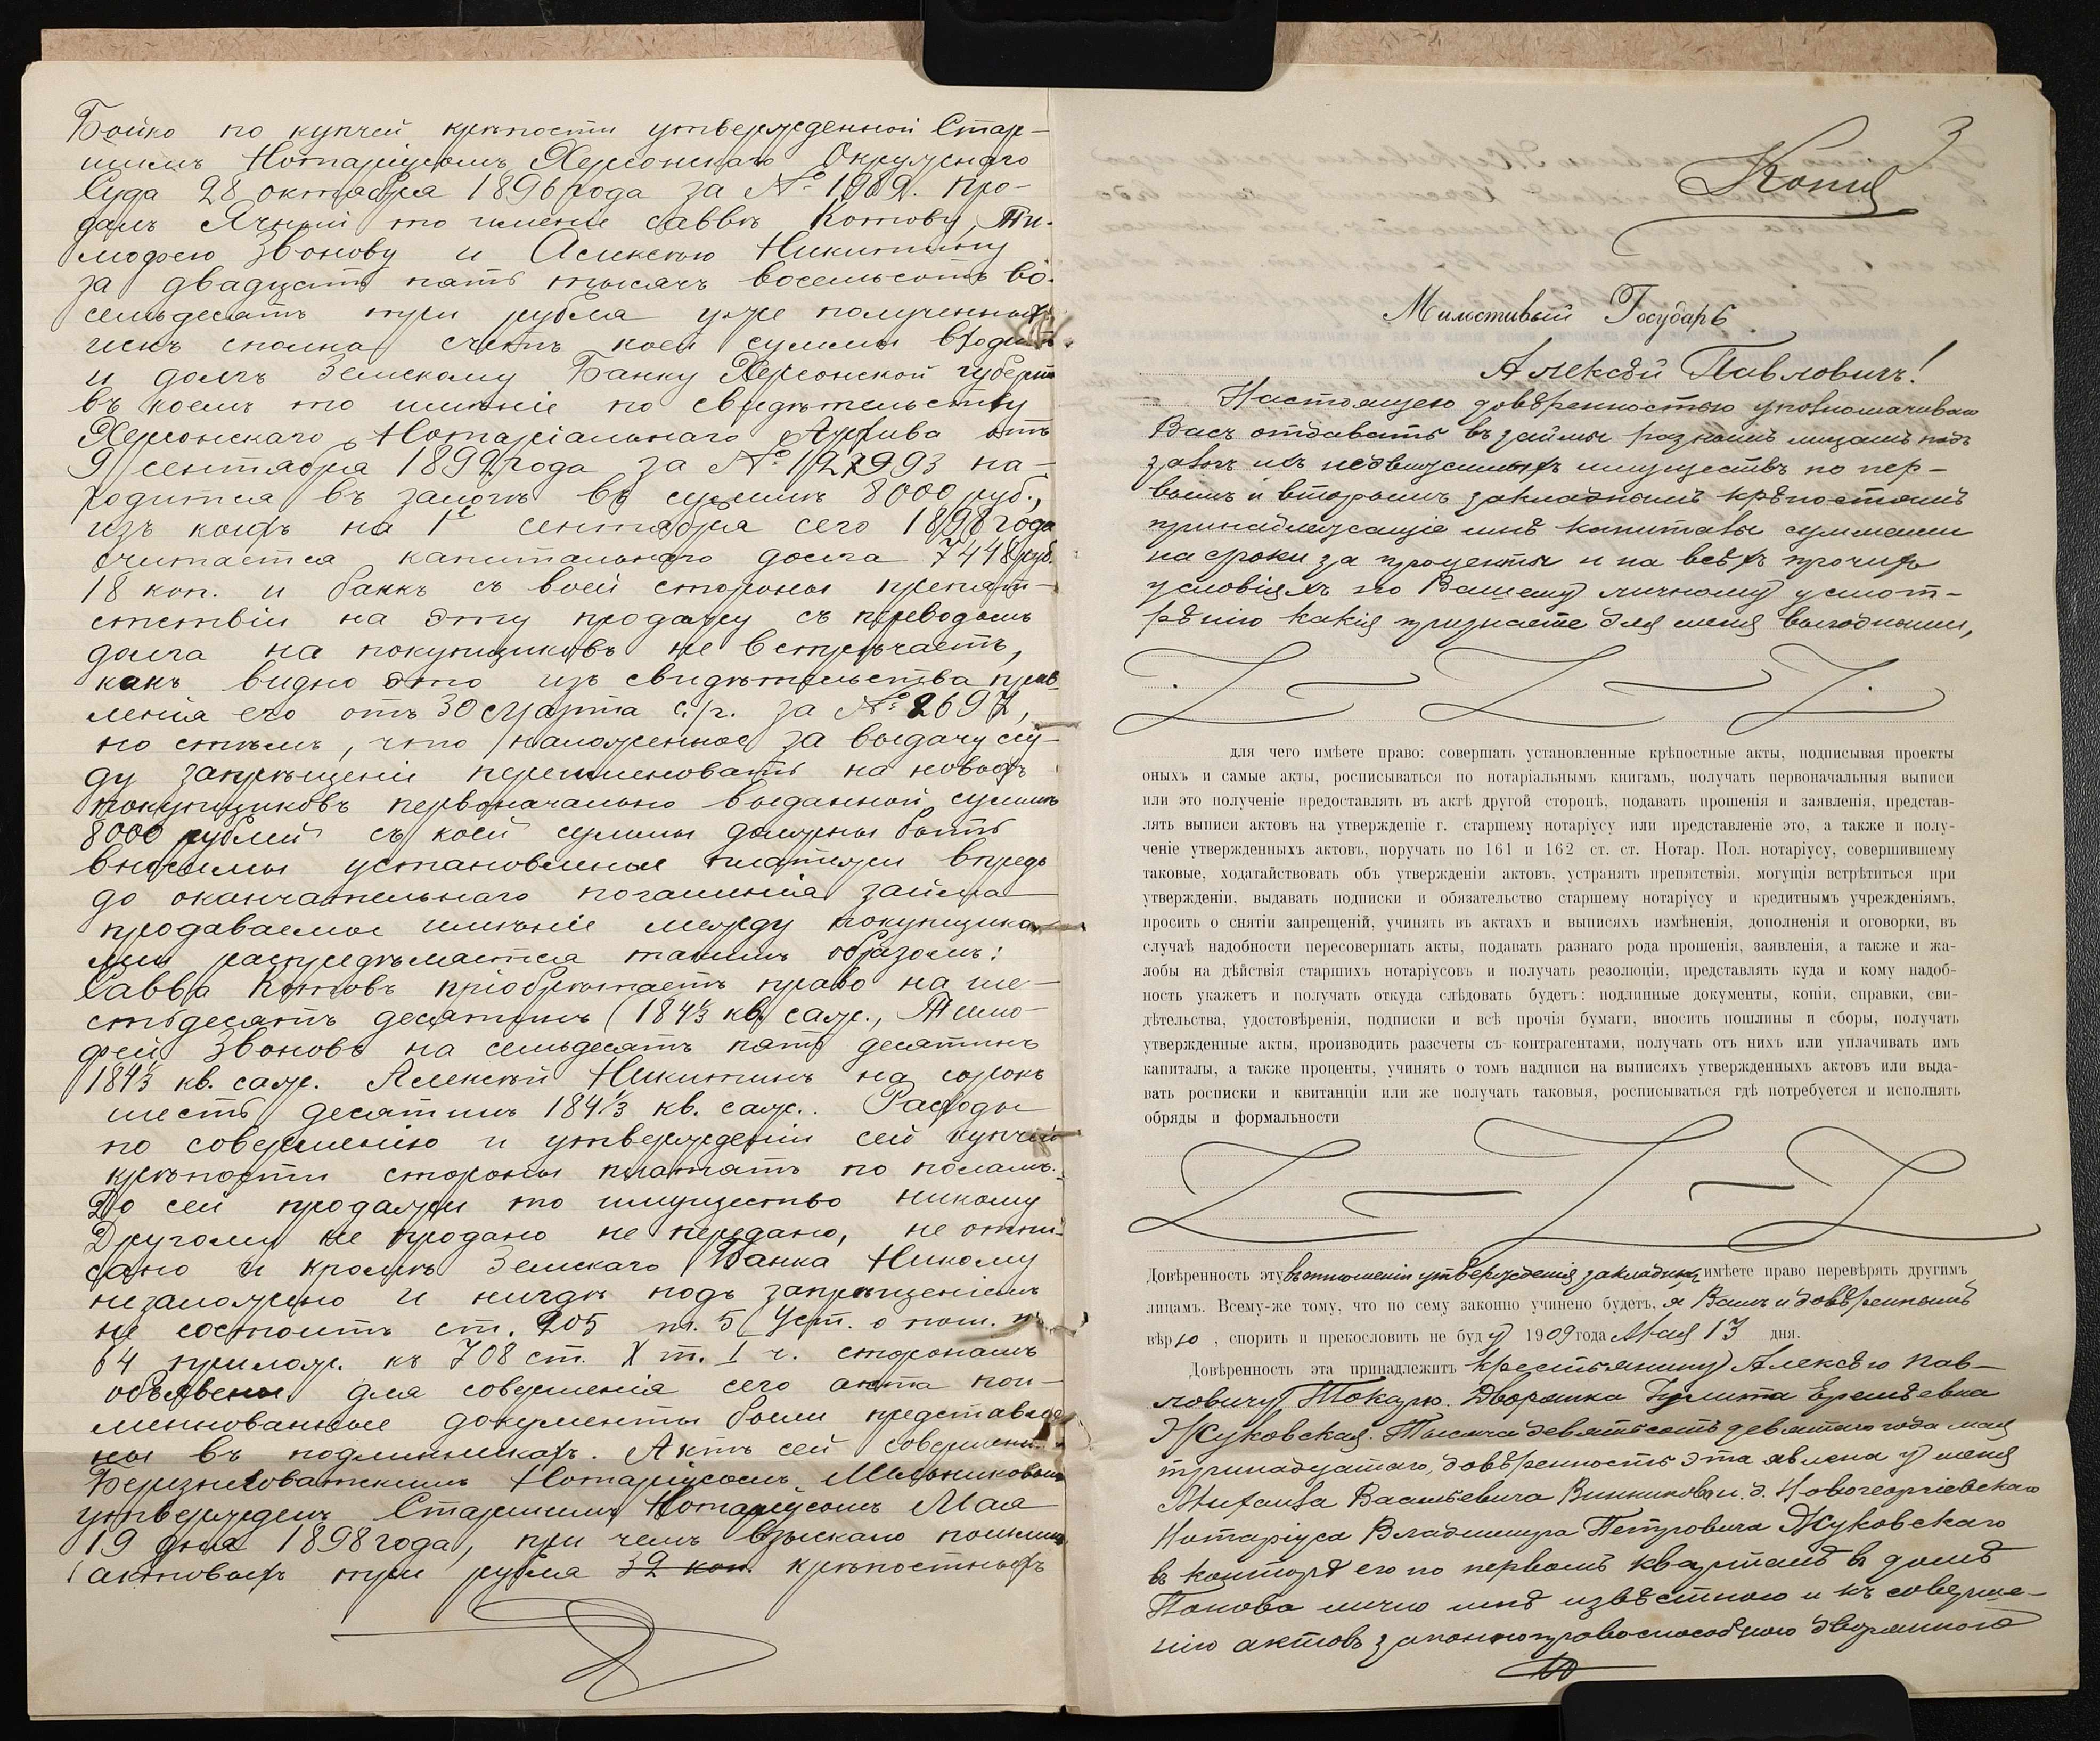 Бойко по купчей крѣпости утвержденной Стар-
шимъ Нотаріусомъ Херсонскаго Окружнаго
Суда 28 октября 1896 года за № 1989. про-
далъ имѣніе Саввѣ Котову, Ти-
мофею Звонову и Алексѣю Никитину
за двадцать пять тысячъ восемьсотъ во-
семьдесятъ три рубля уже полученныхъ
имъ сполна счетъ коей суммы входитъ
и долгъ Земскому Банку Херсонской губерніи
въ коемъ то имѣніе по свидѣтельству
Херсонскаго Нотаріальнаго Архива отъ
9 сентября года за № на-
ходится въ залогѣ въ суммѣ 8000 руб.,
изъ коихъ на 1е сентября сего 1898 года
считается капитальнаго долга 7448 руб.
18 коп. и банкъ съ воей стороны препят-
ствіи на эту продажу съ переводомъ
долга на покупщиковъ не встрѣчаетъ,
какъ видно это изъ свидѣтельства прав-
ленія его отъ 30 Марта с./г. за № 2697,
но стѣмъ, что наложенное за выдачу ссу-
ду запрещеніи переименовать на новыхъ
покупщиковъ первоначально выданной суммѣ
8000 рублей съ коей суммы должны быть
вносимы установленные платежи впредь
до окончательнаго погашенія займа
продаваемое имѣніе между покупщика-
ми распредѣляется такимъ образомъ:
Савва Котовъ пріобрѣтаетъ право на ше-
стьдесятъ десятинъ (184⅓ кв. саж., Тимо-
фей Звоновъ на семьдесятъ пять десятинъ
184⅓ кв. саж. Алексѣй Никитинъ на сорокъ
шесть десятинъ 184⅓ кв. саж.. Расходы
по совершенію и утвержденіи сей купчей
крѣпости стороны платятъ по поламъ.
До сей продажи то имущество никому
Другому не продано не передано, не отпи-
сано и кромѣ Земскаго Банка Никому
незаложено и нигдѣ подъ запрещеніемъ
не состоитъ ст. 205 п. 5 Уст. о пош. и
64 прилож. къ 708 ст. X т. I ч. сторонамъ
объявлены для совершенія сего акта пои-
менованные документы были представле-
ны въ подлинникахъ. Актъ сей совершенъ
Березниговатскимъ Нотаріусомъ Мельниковымъ
утвержденъ Старшимъ Нотаріусомъ Мая
19 дня 1898 года, при чемъ взыскано пошлинъ
актовыхъ три рубля 32 коп. крѣпостныхъ
3
Копія
Милостивый Государь
Алексѣй Павловичъ!
Настоящею довѣренностью уполномачиваю
Васъ отдавать въ займы разнымъ лицамъ подъ
залогъ ихъ недвижимыхъ имуществъ по пер-
вымъ и вторымъ закладнымъ крѣпостямъ
принадлежащіе мнѣ капиталы суммами
на сроки за проценты и на всѣхъ прочихъ
условіяхъ по Вашему личному усмот-
рѣнію какія признаете для меня выгодными,
для чего имѣете право: совершать установленные крѣпостные акты, подписывая проекты
оныхъ и самые акты, росписываться по нотаріальнымъ книгамъ, получать первоначальныя выписи
или это полученіе предоставлять въ актѣ другой сторонѣ, подавать прошенія и заявленія, представ-
лять выписи актовъ на утвержденіе г. старшему нотаріусу или представленіе это, а также и полу-
ченіе утвержденныхъ актовъ, поручать по 161 и 162 ст. ст. Нотар. Пол. нотаріусу, совершившему
таковые, ходатайствовать объ утвержденіи актовъ, устранять препятствія, могущія встрѣтиться при
утвержденіи, выдавать подписки и обязательство старшему нотаріусу и кредитнымъ учрежденіямъ,
просить о снятіи запрещеній, учинять въ актахъ и выписяхъ измѣненія, дополненія и оговорки, въ
случаѣ надобности пересовершать акты, подавать разнаго рода прошенія, заявленія, а также и жа-
лобы на дѣйствія старшихъ нотаріусовъ и получать резолюціи, представлять куда и кому надоб-
ность укажетъ и получать откуда слѣдовать будетъ: подлинные документы, копіи, справки, сви-
дѣтельства, удостовѣренія, подписки и всѣ прочія бумаги, вносить пошлины и сборы, получать
утвержденные акты, производить разсчеты съ контрагентами, получать отъ нихъ или уплачивать имъ
капиталы, а также проценты, учинять о томъ надписи на выписяхъ утвержденныхъ актовъ или выда-
вать росписки и квитанціи или же получать таковыя, росписываться гдѣ потребуется и исполнять
обряды и формальности
Довѣренность эту въ отношеніи утвержденія закладныхъ имѣете право перевѣрять другимъ
лицамъ. Всему-же тому, что по сему законно учинено будетъ, я Вамъ и довѣреннымъ
вѣрю, спорить и прекословить не буду 1909 года Мая 13 дня.
Довѣренность эта принадлежитъ крестьянину Алексѣю Пав-
ловичу Токарю. Дворянка Еремѣевна
Жуковская. Тысяча девятьсотъ девятаго года мая
тринадцатаго, довѣренность эта явлена у меня
Михаила Васильевича Винникова и. д. Новогеоргіевскаго
Нотаріуса Владиміра Петровича Жуковскаго
въ конторѣ его по первомъ кварталѣ въ домѣ
Попова лично мнѣ извѣстною и къ соверше-
нію актовъ законноправоспособною дворянкою